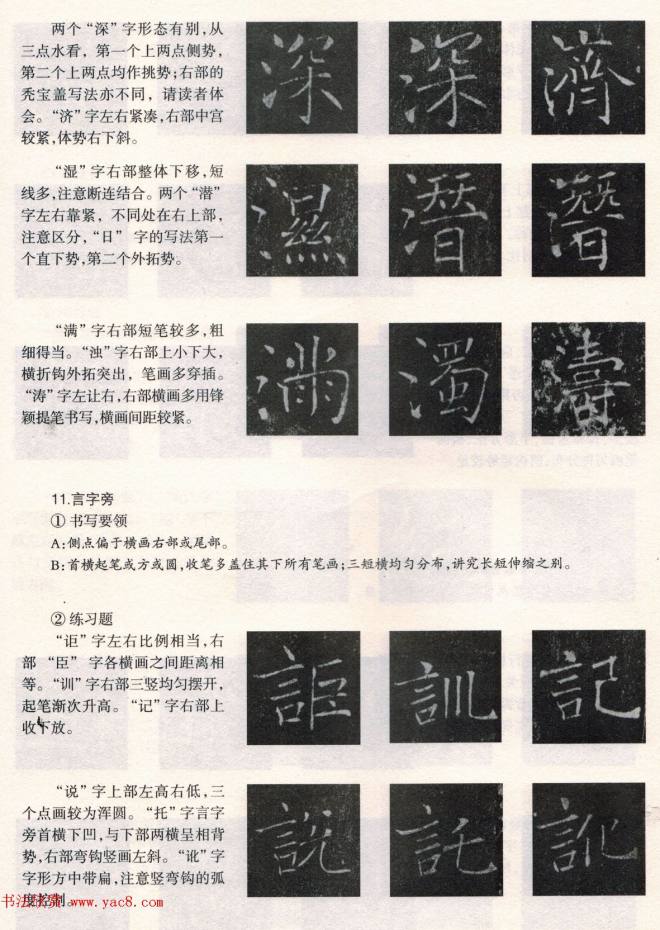 两个“深”字形态有别,从
三点水看，第一个上两点侧势，
第二个上两点均作挑势;右部的
秃宝盖写法亦不同，请读者体
会。“济”字左右紧凑,右部中宫
较紧,体势右下斜。
深 深 濟
“湿”字右部整体下移,短
线多,注意断连结合。两个“潜”
字左右靠紧，不同处在右上部，
注意区分,“日” 字的写法第一
个直下势,第二个外拓势。
濕 潛 潛
“满”字右部短笔较多,粗
细得当。“浊”字右部上小下大，
横折钩外拓突出，笔画多穿插。
“涛”字左让右,右部横画多用锋
颖提笔书写,横画间距较紧。
满 濁 濤
11.言字旁
① 书写要领
A:侧点偏于横画右部或尾部。
B:首横起笔或方或圆,收笔多盖住其下所有笔画;三短横均匀分布,讲究长短伸缩之别。
② 练习题
“讵”字左右比例相当,右
部 “臣” 字各横画之间距离相
等。“训”字右部三竖均匀摆开，
起笔渐次升高。“记”字右部上
收下放。
詎 訓 記
“说”字上部左高右低,三
个点画较为浑圆。“托”字言字
旁首横下凹,与下部两横呈相背
势,右部弯钩竖画左斜。“讹”字
字形方中带扁,注意竖弯钩的弧
度控制。
説 託 訛
www.yac8.com